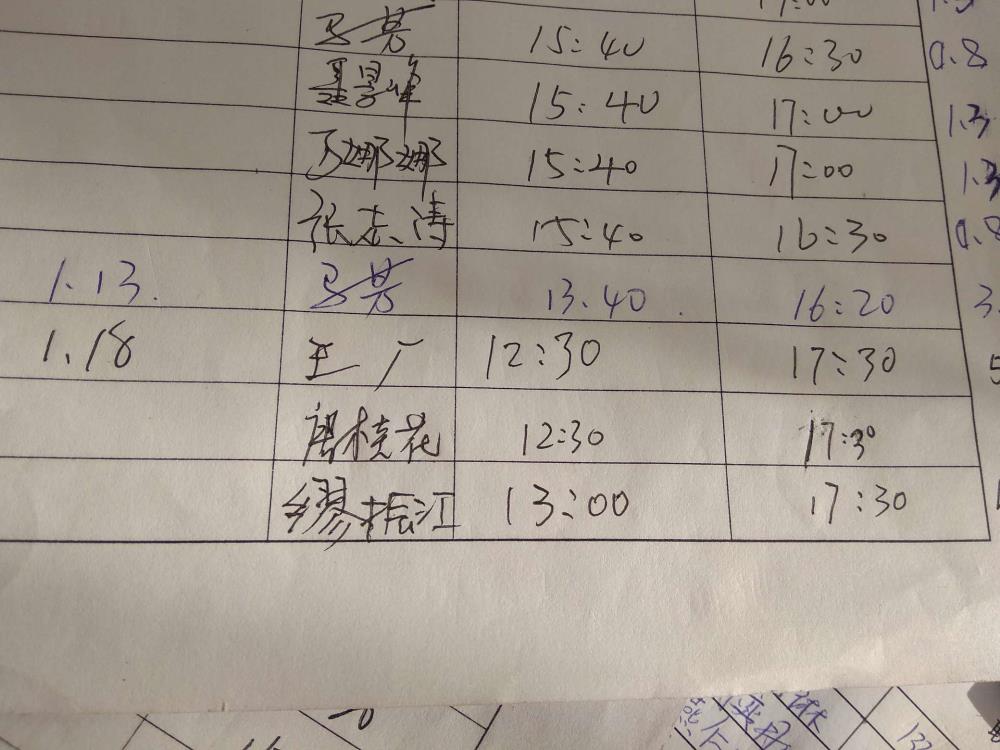 15:40 16:30 0.8
15:40 17:00 1.3
马娜娜 15:40 17:00 1.3
张志涛 15:40 16:30 0.8
1.13. 13.40. 16:20 3.
1.18 王广 12:30 17:30 5
唐桂花 12:30 17:30
缪振江 13:00 17:30